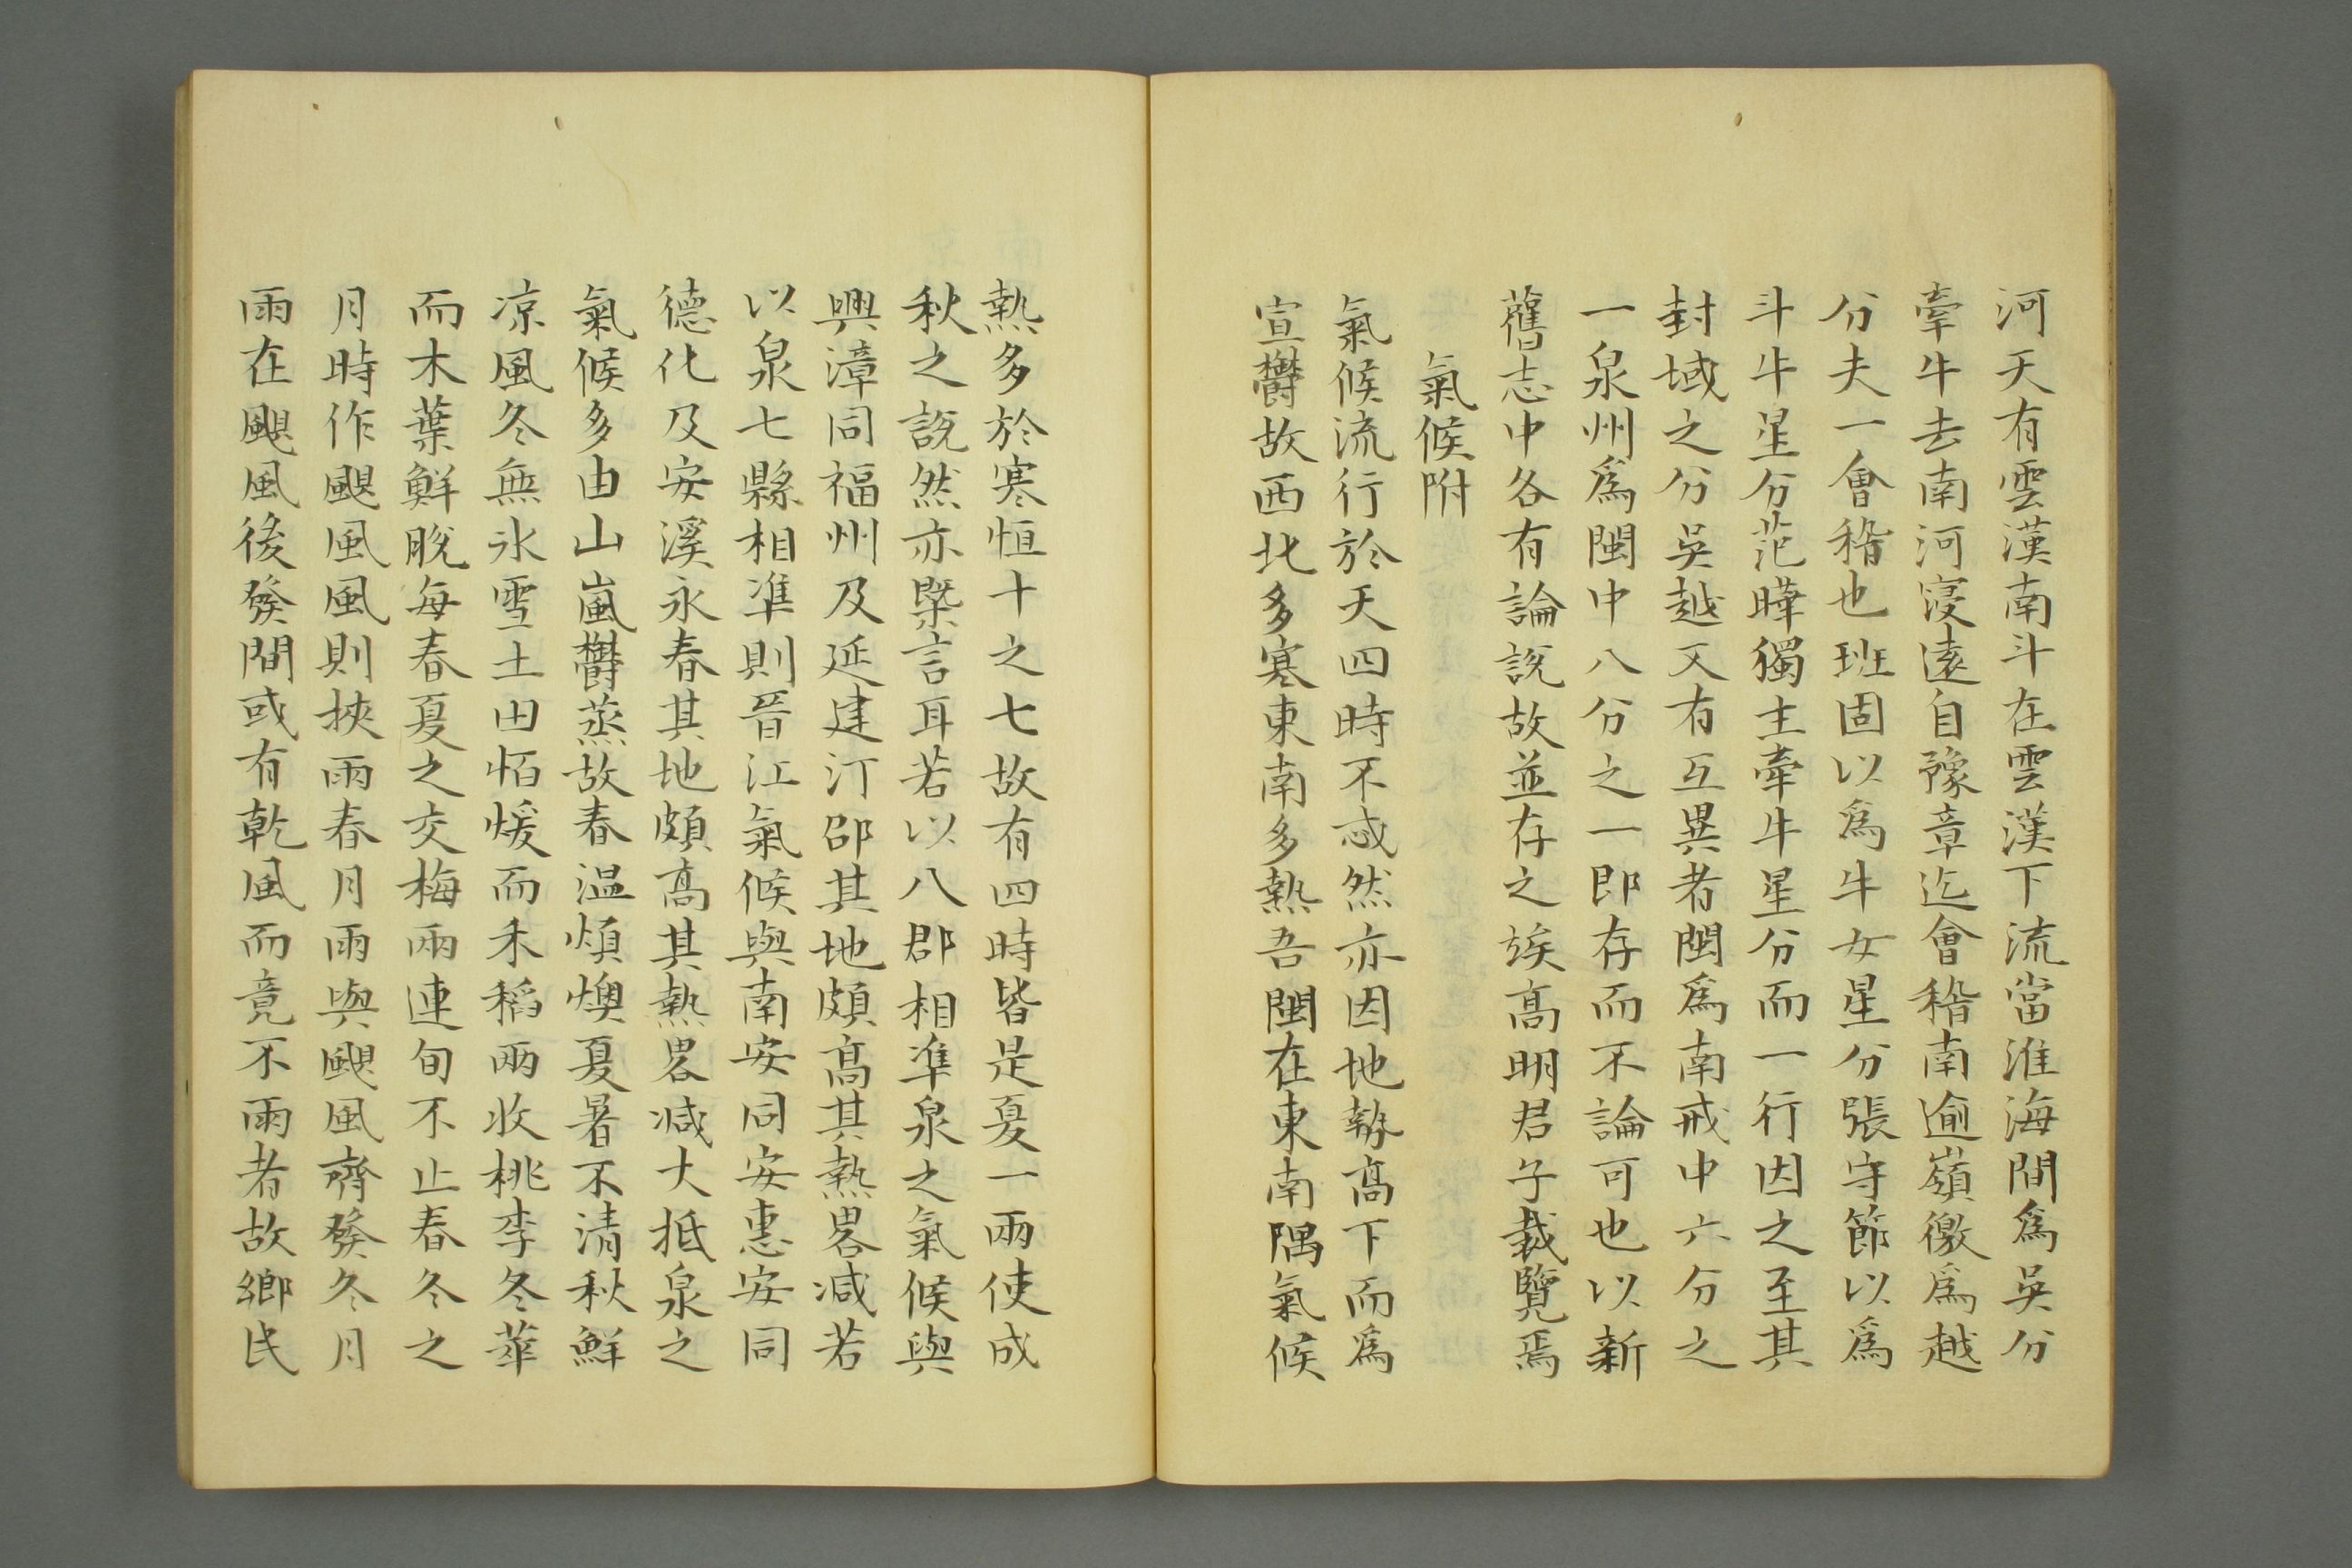 河天有雲漢南斗在雲漢下流當淮海間爲吳分
牽牛去南河寖遠自豫章迄會稽南逾嶺徼爲越
分夫一會稽也班固以爲牛女星分張守節以爲
斗牛星分范曄獨主牽牛星分而一行因之至其
封域之分吳越又有互異者閩爲南戒中六分之
一泉州爲閩中八分之一即存而不論可也以新
舊志中各有論說故並存之竢髙明君子裁覽焉
氣候附
氣候流行於天四時不忒然亦因地勢髙下而爲
宣欝故西北多寒東南多熱吾閩在東南隅氣候
熱多於寒恒十之七故有四時皆是夏一雨使成
秋之說然亦槩言耳若以八郡相準泉之氣候與
興漳同福州及延建汀邵其地頗髙其熱畧减若
以泉七縣相準則晉江氣候與南安同安惠安同
德化及安溪永春其地頗髙其熱畧减大抵泉之
氣候多由山嵐欝蒸故春温煩燠夏暑不清秋鮮
凉風冬無氷雪土田恒煖而禾稻兩收桃李冬華
而木葉鮮脫每春夏之交梅雨連旬不止春冬之
月時作颶風風則挾雨春月雨與颶風齊發冬月
雨在颶風後發間或有乾風而竟不雨者故鄉民